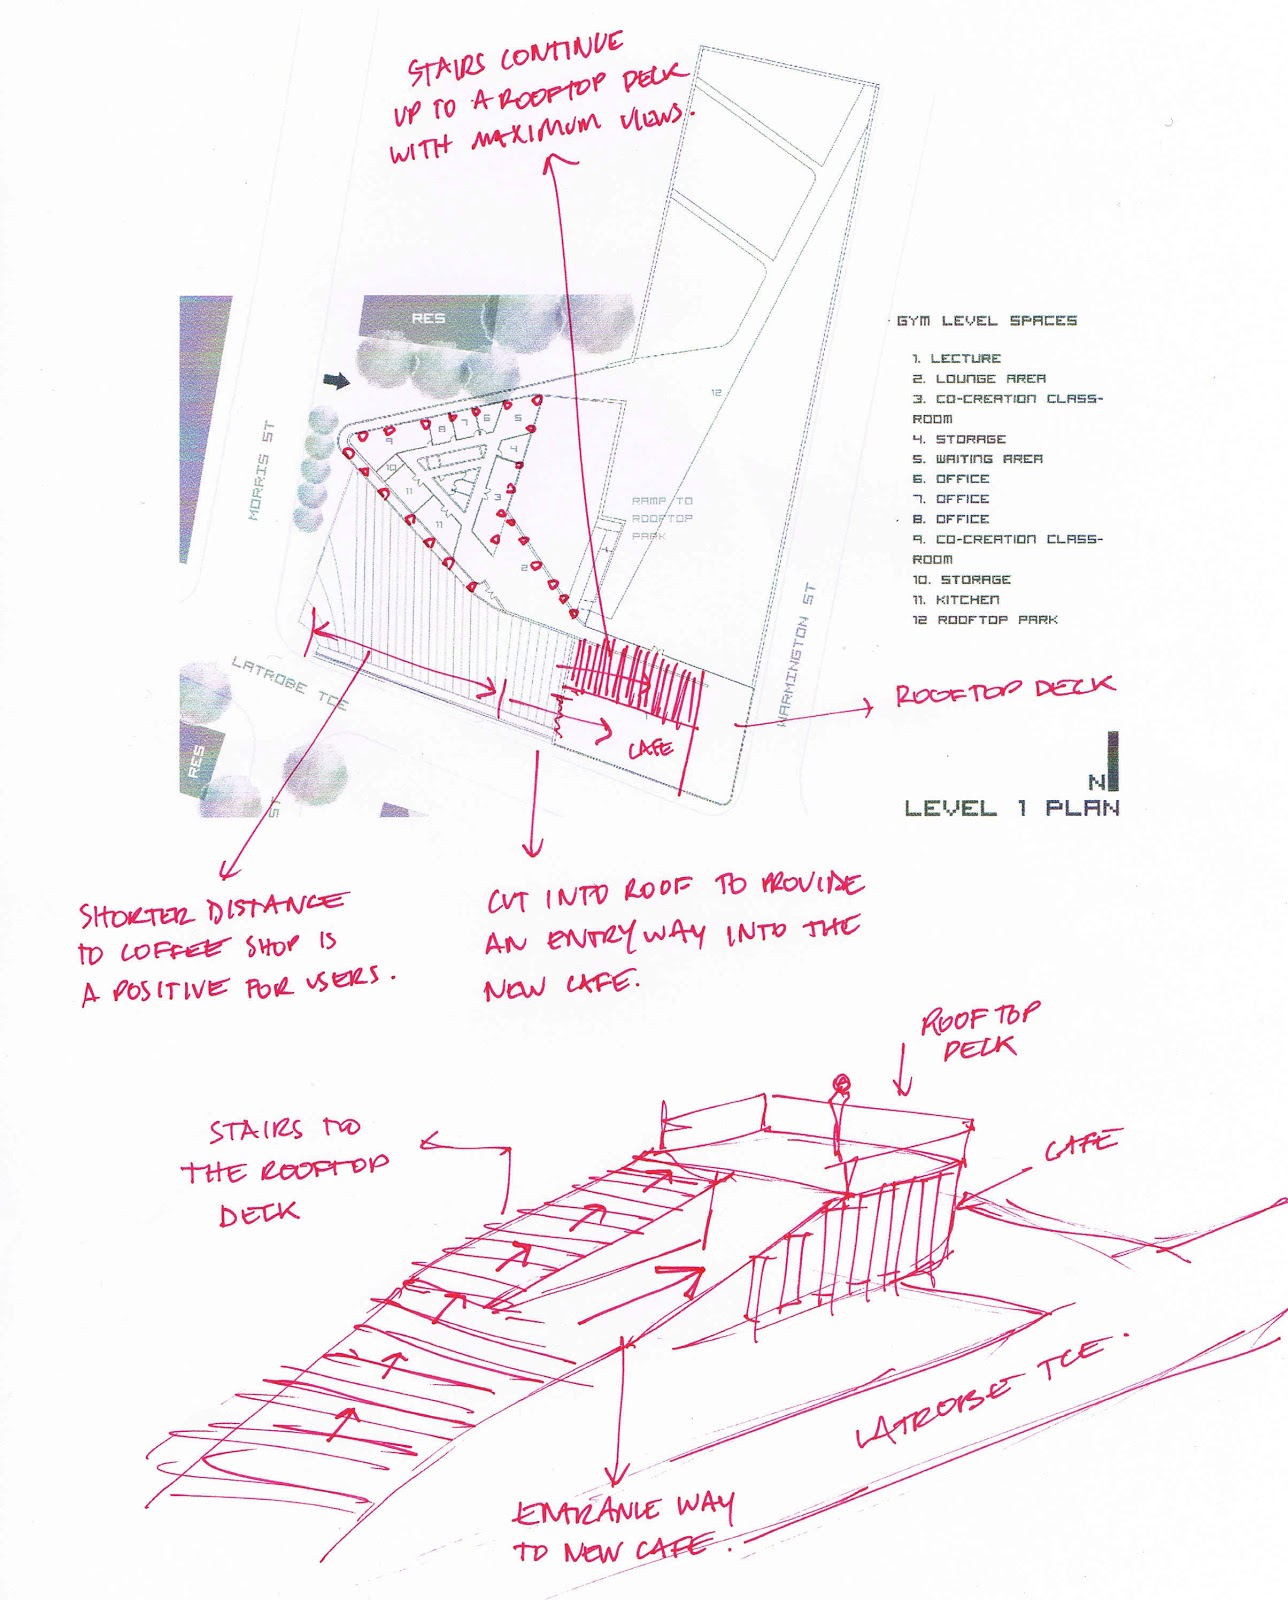 STAIRS CONTINUE
UP TO A ROOFTOP DECK
WITH MAXIMUM VIEWS.
RES
GYM LEVEL SPACES
1. LECTURE
2. LOUNGE AREA
3. CO-CREATION CLASS-
ROOM
4. STORAGE
5. WAITING AREA
6. OFFICE
7. OFFICE
8. OFFICE
9. CO-CREATION CLASS-
ROOM
10. STORAGE
11. KITCHEN
12 ROOFTOP PARK
12
9
8
7
6
5
4
10
11
3
11
2
RAMP TO
ROOFTOP
PARK
MORRIS ST
LATROBE TCE
WARMINGTON ST
RES
ST
CAFE
ROOFTOP DECK
N
LEVEL 1 PLAN
SHORTER DISTANCE
TO COFFEE SHOP IS
A POSITIVE FOR USERS.
CUT INTO ROOF TO PROVIDE
AN ENTRY WAY INTO THE
NEW CAFE.
ROOFTOP
DECK
STAIRS TO
THE ROOFTOP
DECK
CAFE
LATROBE TCE.
ENTRANCE WAY
TO NEW CAFE.